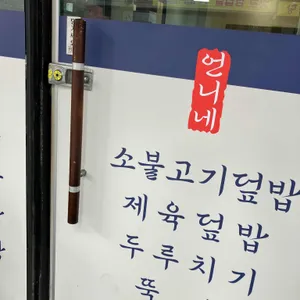 언니네
소불고기덮밥
제육덮밥
두루치기
뚝